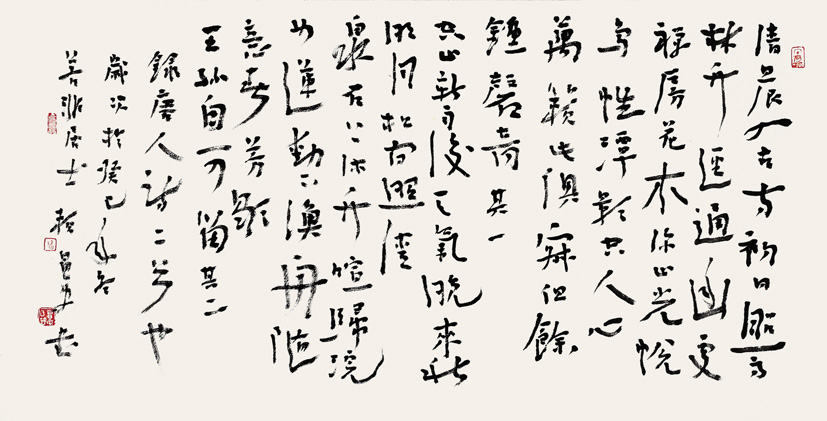 清晨入古寺初日照高
林竹逕通幽處
禪房花木深山光悅
鳥性潭影空人心
萬籟此俱寂但餘
鍾磬音其一
空山新雨後天氣晚來秋
明月松間照清
泉石上流竹喧歸浣
女蓮動下漁舟隨
意春芳歇
王孫自可留其二
錄唐人詩二首也
歲次於癸巳年冬
非居士書